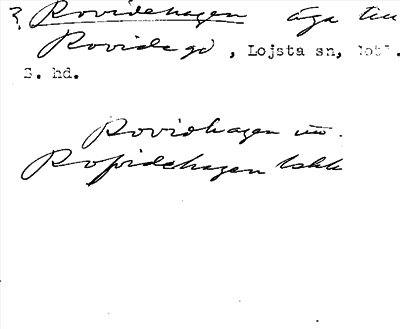 ? Rovidehagen äga till
Rovide gd, Lojsta sn, Gotl.
S. hd.
Rovidhagen
Rofvidehagen